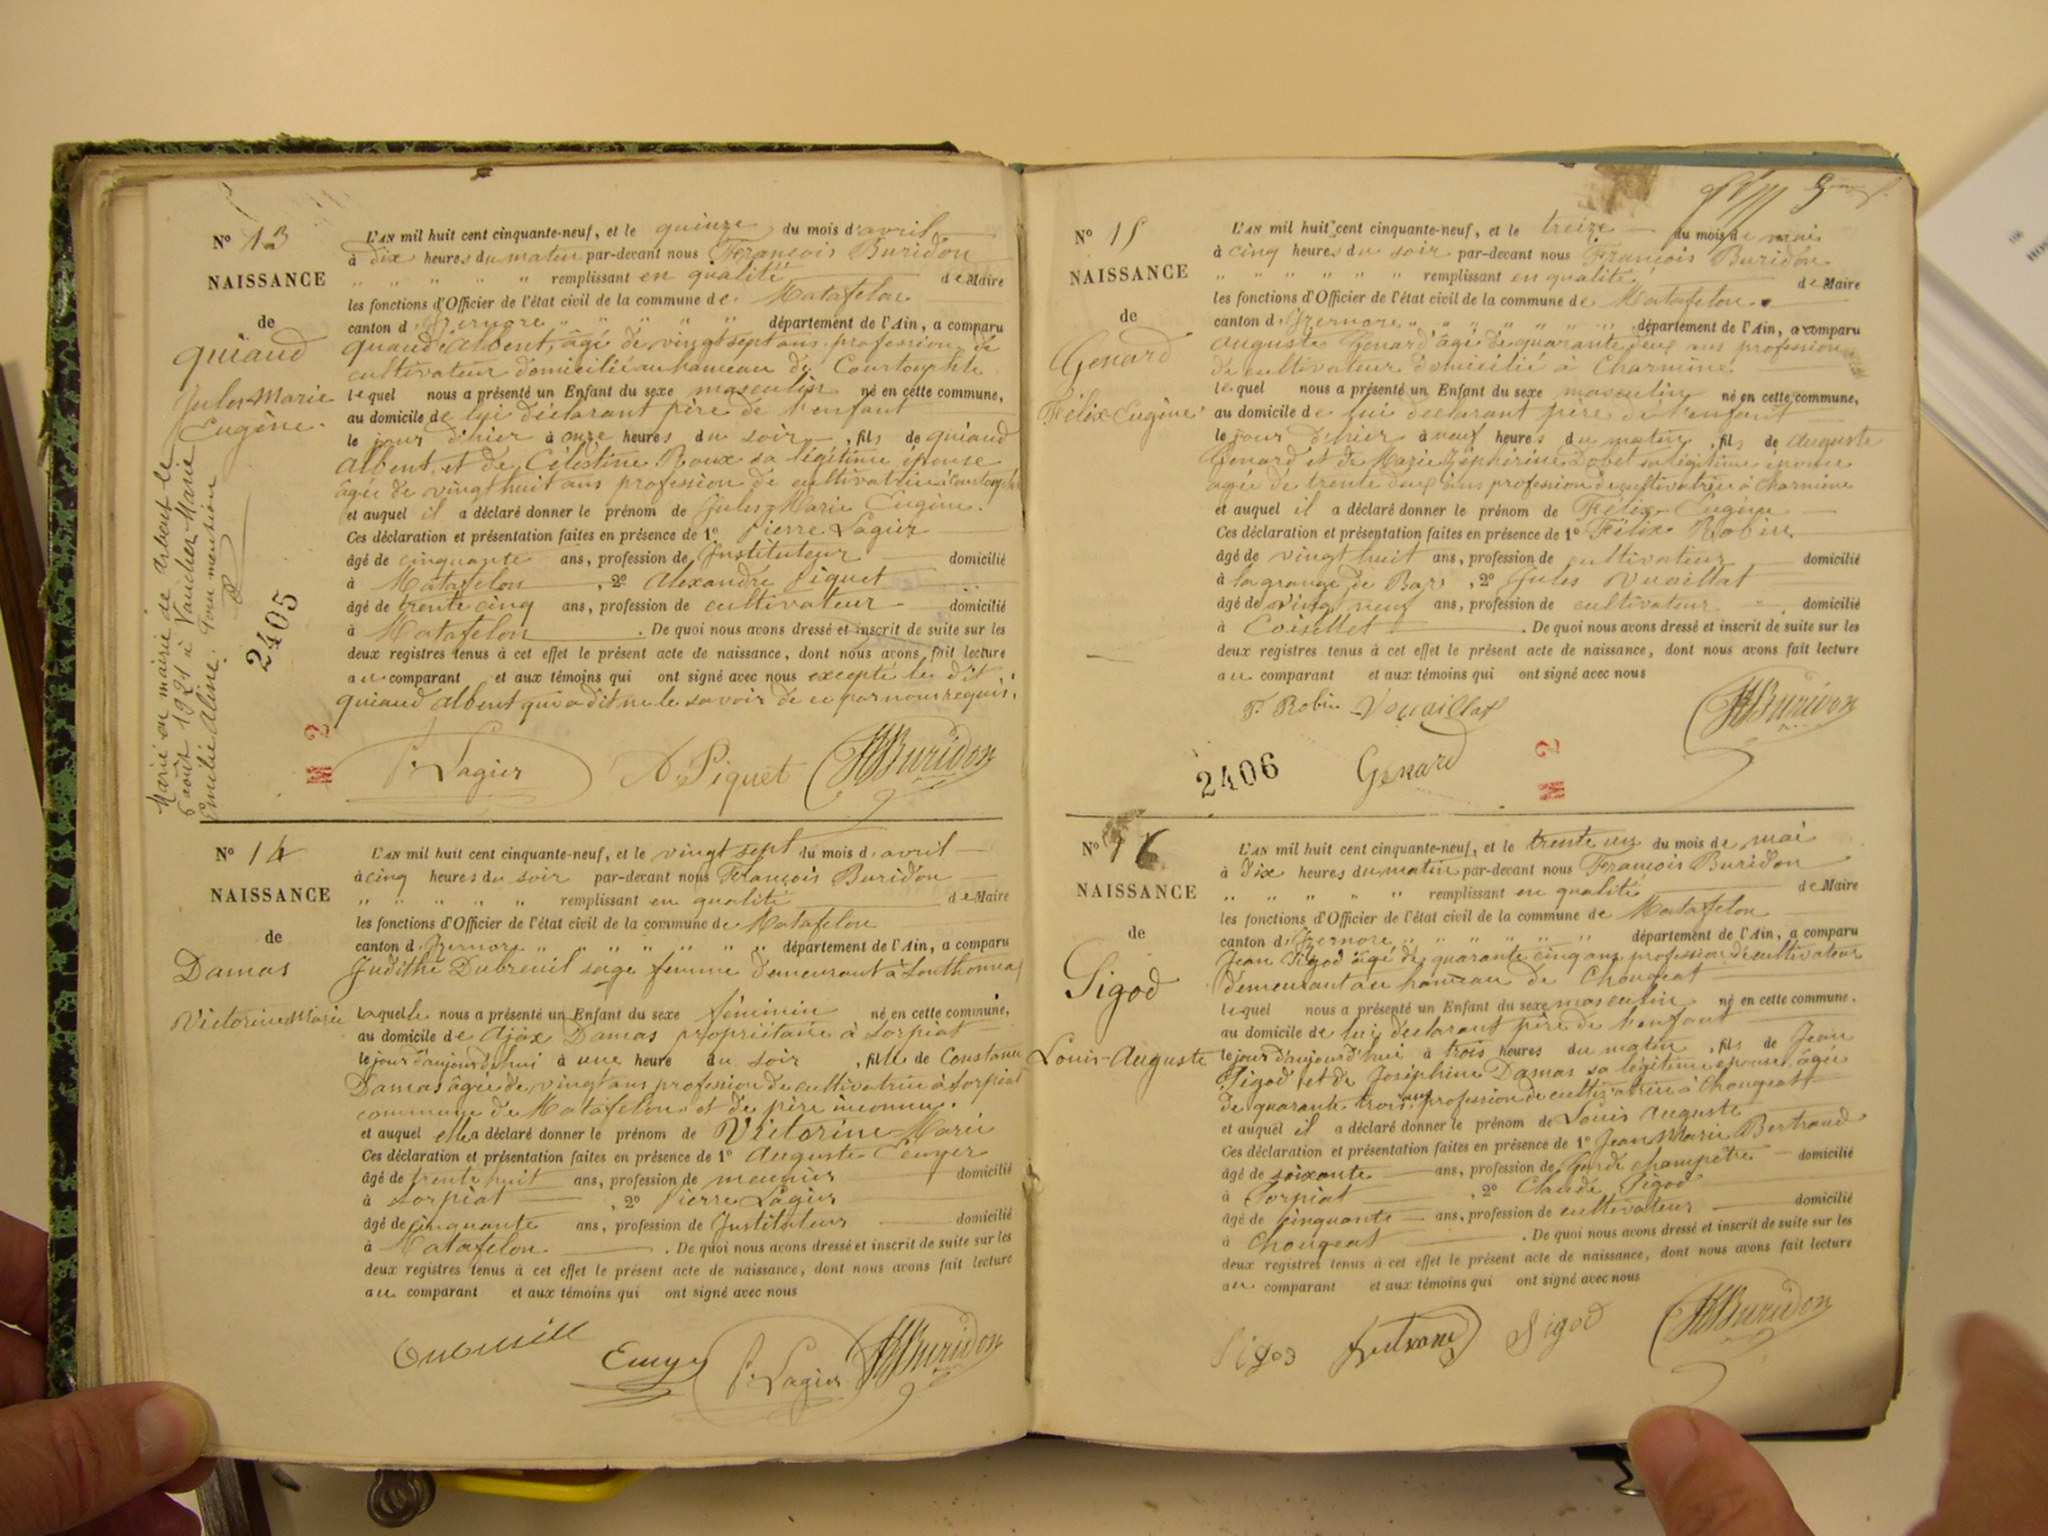 N° 13
NAISSANCE
de
quiaud
Jules Marie
Eugène.
Marié en mairie de Arbent le
6 août 1921 à Vaucher Marie
Emilie Aline. Pour mention
2405
M 2
L'AN mil huit cent cinquante-neuf, et le quinze du mois d'avril
à dix heures du matin par-devant nous François Buridon
" " " " " remplissant en qualité de Maire
les fonctions d'Officier de l'état civil de la commune de Matafelon
canton d'Izernore " " " " " département de l'Ain, a comparu
quiaud Albent, âgé de vingt sept ans profession de
cultivateur domicilié au hameau de Courtouphle
lequel nous a présenté un Enfant du sexe masculin né en cette commune,
au domicile de lui déclarant père de l'enfant
le jour d'hier à onze heures du soir, fils de quiaud
Albent et de Célestine Roux sa légitime épouse
âgée de vingt huit ans profession de cultivatrice à Courtouphle
et auquel il a déclaré donner le prénom de Jules Marie Eugène.
Ces déclaration et présentation faites en présence de 1° Pierre Lagier
âgé de cinquante ans, profession de Instituteur domicilié
à Matafelon, 2° Alexandre Piquet
âgé de trente cinq ans, profession de cultivateur domicilié
à Matafelon. De quoi nous avons dressé et inscrit de suite sur les
deux registres tenus à cet effet le présent acte de naissance, dont nous avons fait lecture
au comparant et aux témoins qui ont signé avec nous excepté le dit
quiaud Albent qui a dit ne le savoir de ce par nous requis.
P. Lagier A. Piquet Buridon
N° 14
NAISSANCE
de
Damas
Victorine Marie
L'AN mil huit cent cinquante-neuf, et le vingt sept du mois d'avril
à cinq heures du soir par-devant nous François Buridon
" " " " " remplissant en qualité de Maire
les fonctions d'Officier de l'état civil de la commune de Matafelon
canton d'Izernore " " " " " " " département de l'Ain, a comparu
Judithe Dubreuil sage femme demeurant à
laquelle nous a présenté un Enfant du sexe féminin né en cette commune,
au domicile de Ajax Damas propriétaire à Corpiat
le jour d'aujourd'hui à une heure du soir, fille de Constance
Damas âgée de vingt ans profession de cultivatrice à Corpiat
commune de Matafelon et de père inconnu.
et auquel elle a déclaré donner le prénom de Victorine Marie
Ces déclaration et présentation faites en présence de 1° Auguste
âgé de trente huit ans, profession de meunier domicilié
à Corpiat, 2° Pierre Lagier
âgé de cinquante ans, profession de Instituteur domicilié
à Matafelon. De quoi nous avons dressé et inscrit de suite sur les
deux registres tenus à cet effet le présent acte de naissance, dont nous avons fait lecture
au comparant et aux témoins qui ont signé avec nous
P. Lagier Buridon
N° 15
NAISSANCE
de
Genard
Félix-Eugène
L'AN mil huit cent cinquante-neuf, et le treize du mois de mai
à cinq heures du soir par-devant nous François Buridon
" " " " " " remplissant en qualité de Maire
les fonctions d'Officier de l'état civil de la commune de Matafelon.
canton d'Izernore " " " " " " " département de l'Ain, a comparu
Auguste Genard âgé de quarante deux ans profession
de cultivateur domicilié à Charmine
lequel nous a présenté un Enfant du sexe masculin né en cette commune,
au domicile de lui déclarant père de l'enfant
le jour d'hier à neuf heures du matin, fils de Auguste
Genard et de Marie Zéphirine Dobet sa légitime épouse
âgée de trente deux ans profession de cultivatrice à Charmine
et auquel il a déclaré donner le prénom de Félix Eugène
Ces déclaration et présentation faites en présence de 1° Félix Robin
âgé de vingt huit ans, profession de cultivateur domicilié
à la grange de Bar, 2° Jules Vuaillat
âgé de vingt neuf ans, profession de cultivateur domicilié
à Coisellet. De quoi nous avons dressé et inscrit de suite sur les
deux registres tenus à cet effet le présent acte de naissance, dont nous avons fait lecture
au comparant et aux témoins qui ont signé avec nous
F. Robin Vouaillat Buridon
2406 Genard M 2
N° 16
NAISSANCE
de
Sigod
Louis-Auguste
L'AN mil huit cent cinquante-neuf, et le trente un du mois de mai
à dix heures du matin par-devant nous François Buridon
" " " " " remplissant en qualité de Maire
les fonctions d'Officier de l'état civil de la commune de Matafelon
canton d'Izernore " " " " " " département de l'Ain, a comparu
Jean Sigod âgé de quarante cinq ans profession de cultivateur
demeurant au hameau de Chougeat
lequel nous a présenté un Enfant du sexe masculin né en cette commune.
au domicile de lui déclarant père de l'enfant
le jour d'aujourd'hui à trois heures du matin, fils de Jean
Sigod et de Joséphine Damas sa légitime épouse, âgée
de quarante trois ans profession de cultivatrice à Chougeat
et auquel il a déclaré donner le prénom de Louis Auguste
Ces déclaration et présentation faites en présence de 1° Jean Marie Bertrand
âgé de soixante ans, profession de Garde champêtre domicilié
à Corpiat, 2° Claude Sigod
âgé de cinquante ans, profession de cultivateur domicilié
à Chougeat. De quoi nous avons dressé et inscrit de suite sur les
deux registres tenus à cet effet le présent acte de naissance, dont nous avons fait lecture
au comparant et aux témoins qui ont signé avec nous
Sigod Bertrand Sigod Buridon